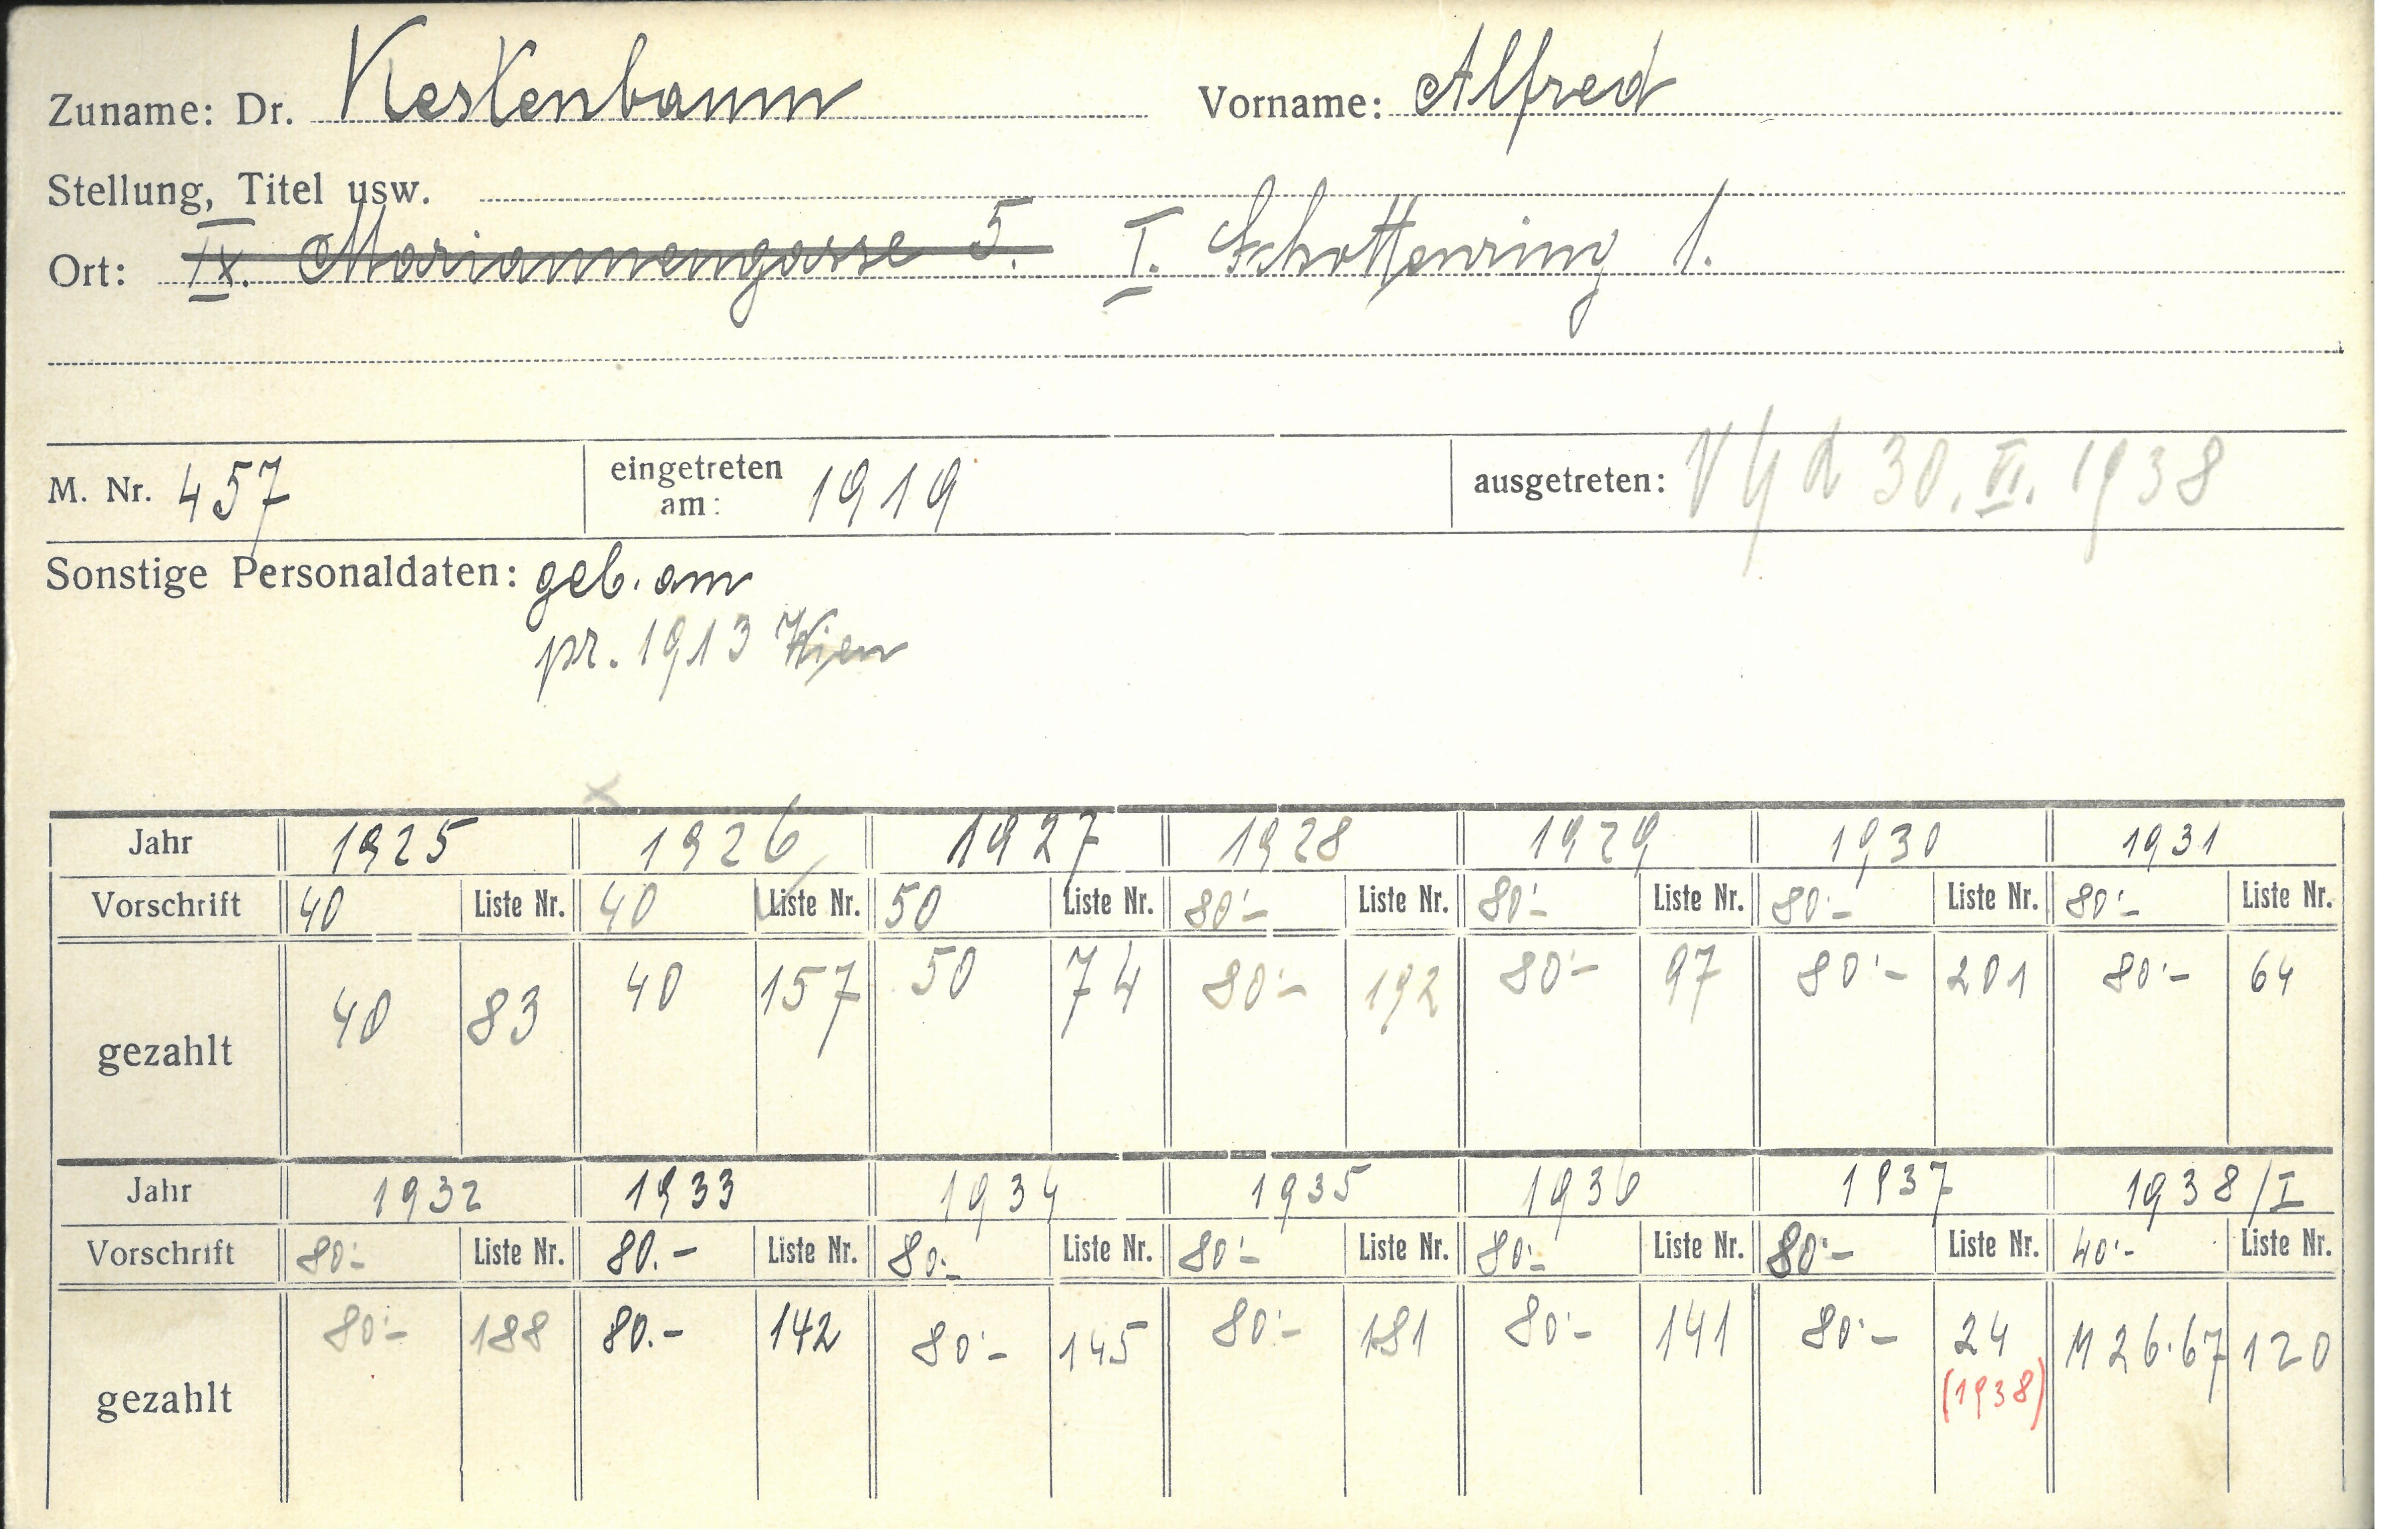 Zuname: Dr. Kestenbaum Vorname: Alfred
Stellung, Titel usw.
Ort: IX. Mariannengasse 5. I. Schottenring 1.
M. Nr. 457 eingetreten am: 1919 ausgetreten: 30. VI. 1938
Sonstige Personaldaten: geb. am
pr. 1913 Wien
x
Jahr 1925 1926 1927 1928 1929 1930 1931
Vorschrift 40 Liste Nr. 40 Liste Nr. 50 Liste Nr. 80·- Liste Nr. 80·- Liste Nr. 80·- Liste Nr. 80·- Liste Nr.
gezahlt 40 83 40 157 50 74 80·- 192 80·- 97 80·- 201 80·- 64
Jahr 1932 1933 1934 1935 1936 1937 1938/I
Vorschrift 80·- Liste Nr. 80.- Liste Nr. 80·- Liste Nr. 80·- Liste Nr. 80·- Liste Nr. 80·- Liste Nr. 40·- Liste Nr.
gezahlt 80·- 188 80.- 142 80·- 145 80·- 181 80·- 141 80·- 24 M 26·67 120
(1938)